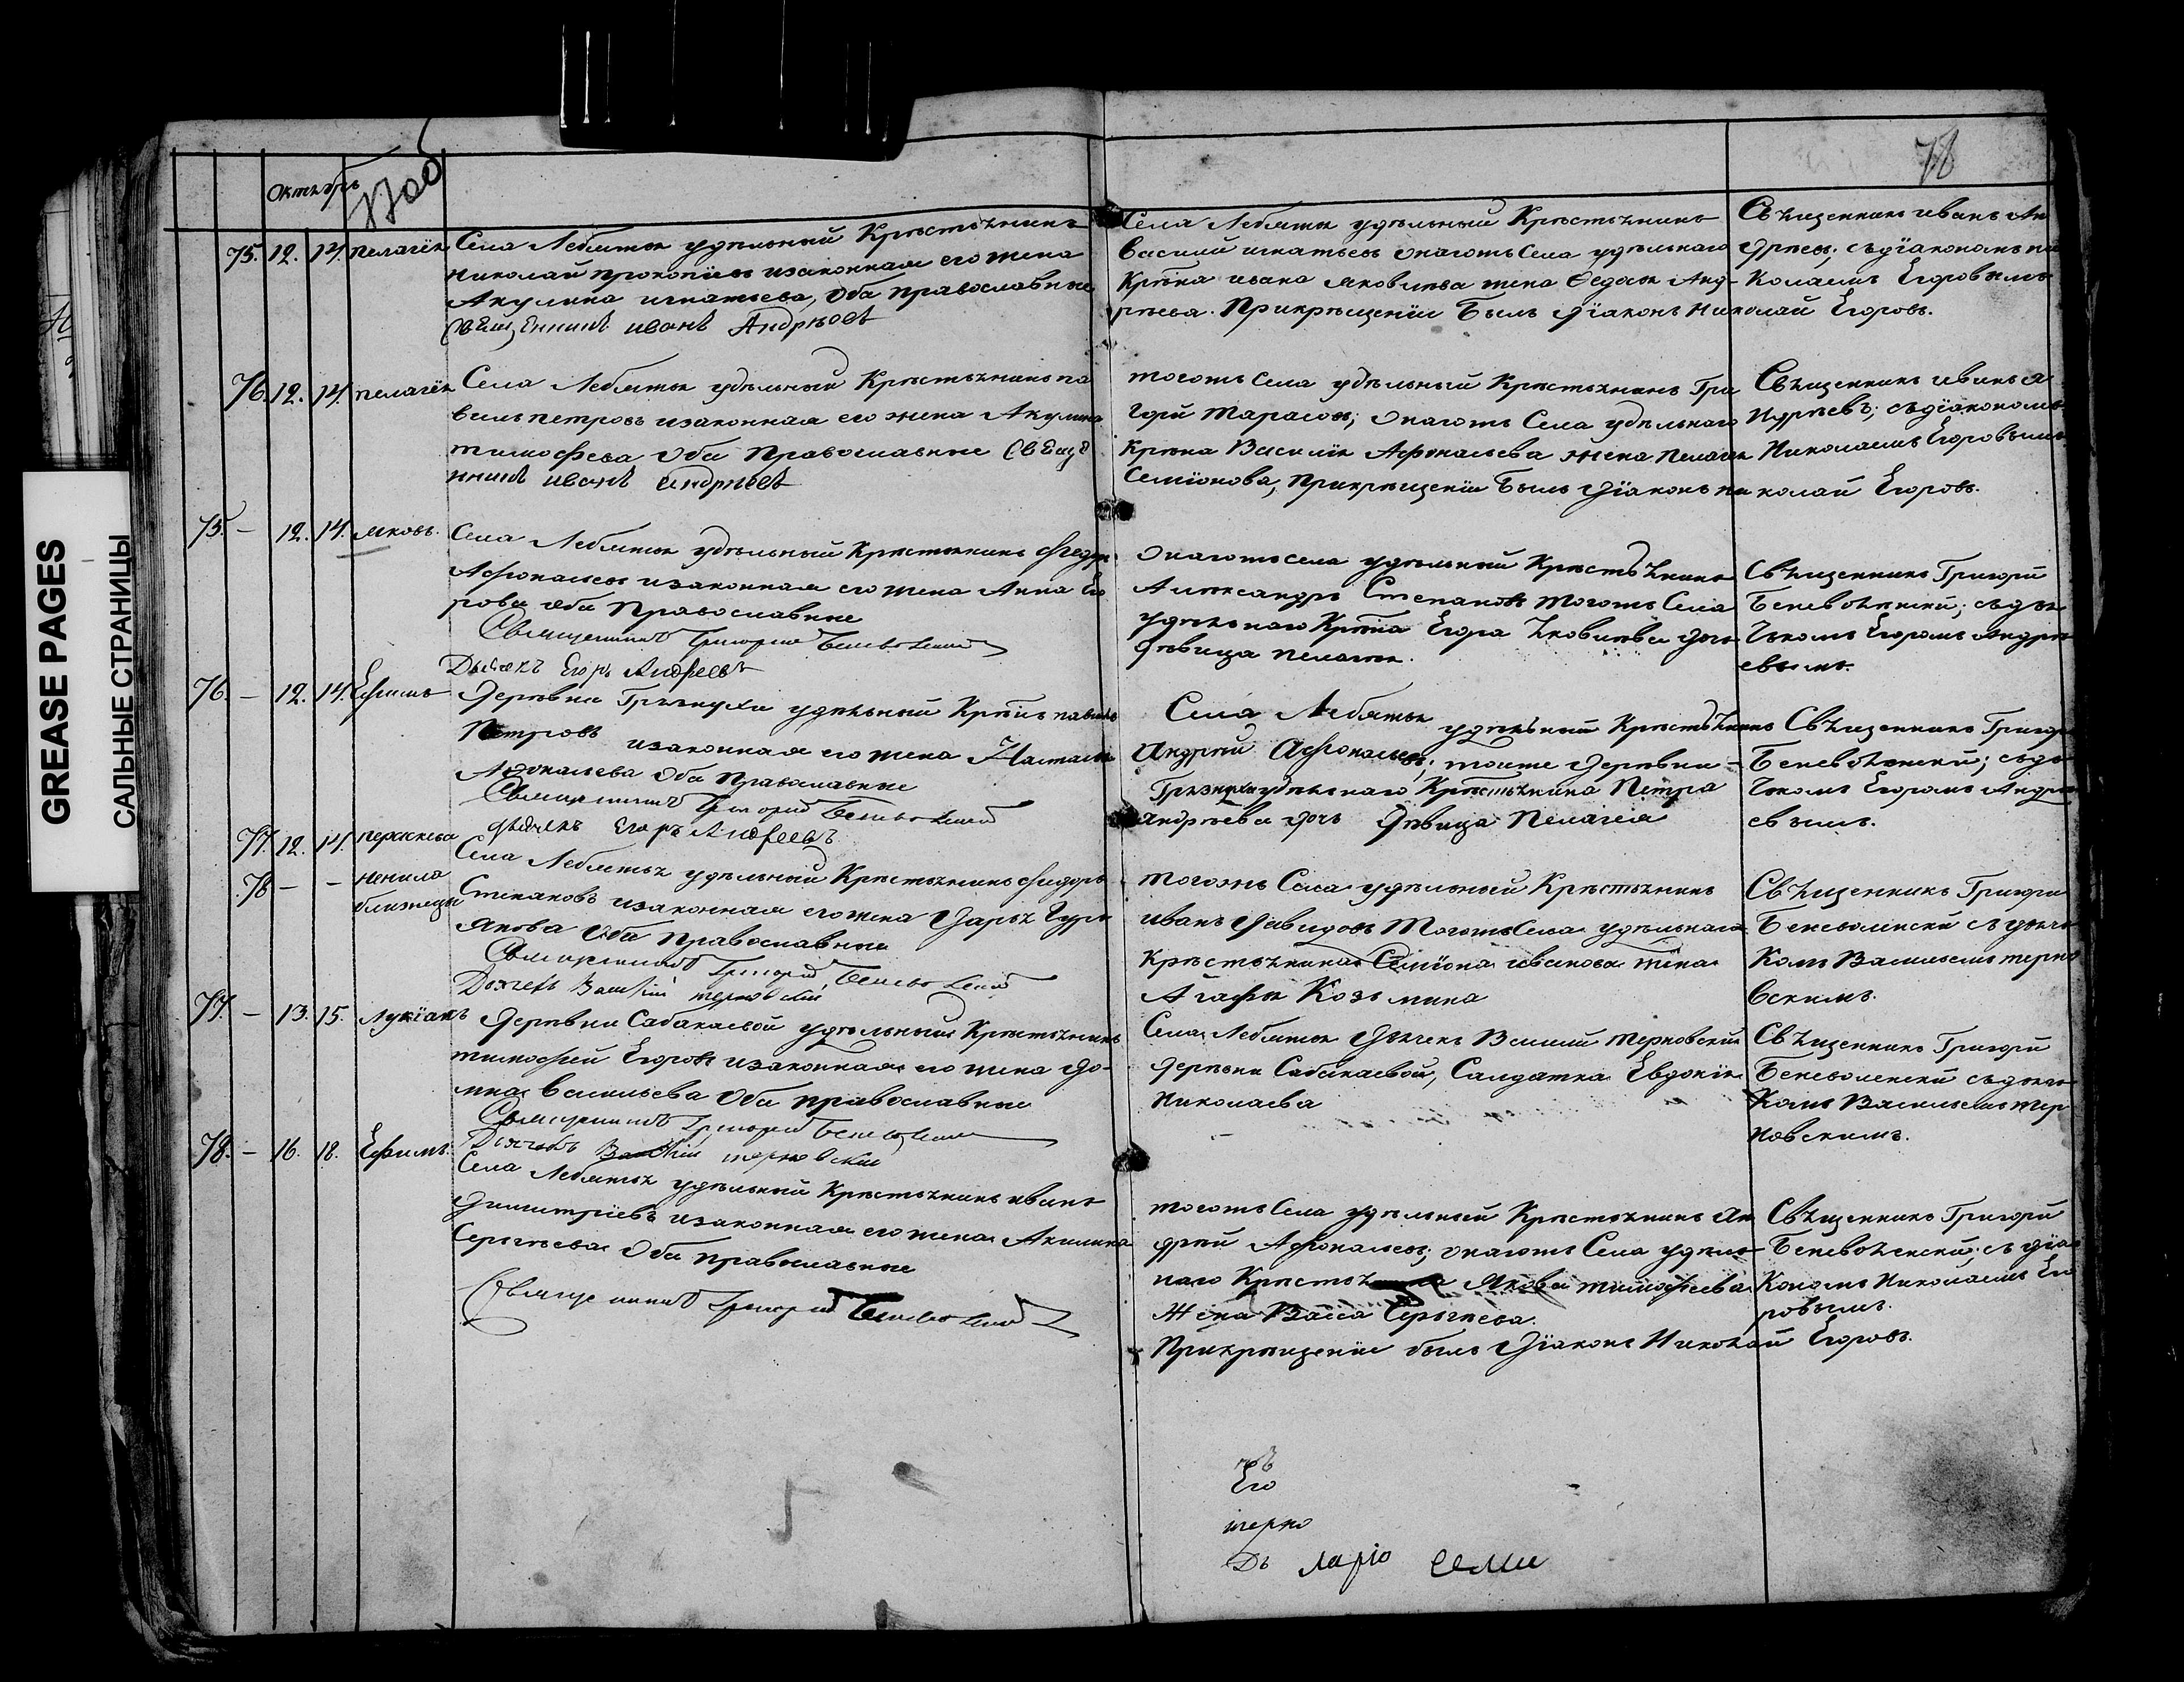 GREASE PAGES
САЛЬНЫЕ СТРАНИЦЫ
Октябрь
78
75. 12. 14. пелагѣя
Села Лебяжья удѣльный Крѣстьянинъ
николай прокопіевъ изаконная его жена
Акулина игнатьева, Оба православные
Священникъ иванъ Андрѣевъ
Села Лебяжья удѣльный Крѣстьянинъ
василий игнатьевъ онагожъ Села удѣльнаго
Крѣна ивана яковлева жена Ѳедосья Анд-
рѣева. Прикрѣщеніи Былъ Діаконъ Николай Егоровъ.
Священникъ иванъ Ан
дрѣевъ; съдіакономъ ни
Колаемъ Егоровымъ
76. 12. 14. пелагѣя
Села Лебяжья удѣльный Крѣстьянинъ па
велъ петровъ изаконная его жена Акулина
тимофева Оба Православные Свяще
нникъ иванъ андрѣевъ
тогожъ Села удѣльный Крѣстьянинъ Гри
горий тарасовъ; онагожъ Села удѣльнаго
Крѣна Василія Афонасьева жена пелагѣя
Семіонова, Прикрѣщеніи Былъ Діаконъ николай Егоровъ.
Священникъ иванъ а
ндрѣевъ; съдіакономъ
Николаемъ Егоровымъ
75. – 12. 14. яковъ.
Села Лебяжья удѣльный Крѣстьянинъ Федоръ
Афонасьевъ изаконная его жена Анна Его
рова Оба Православные
Священникъ Григорий Беневоленский
Дьячекъ Егоръ Андреевъ
онагожъ села удѣльный Крѣстьянинъ
Александръ Степановъ Тогожъ Села
удѣльнаго Крѣна Егора Яковлева дочь
дѣвица пелагѣя.
Священникъ Григорий
Беневоленский; съдья
чкомъ Егоромъ Андре
евымъ.
76. – 12. 14. Ефимъ
Деревни Грязнухи удѣльный Крѣнъ павелъ
Петровъ изаконная его жена Наталья
Афонасьева Оба Православные
Священникъ Григорий Беневоленский
дьячекъ Егоръ Андреевъ
Села Лебяжья удѣльный Крѣстьянинъ
Андрей Афонасьевъ; тойже деревни
Грязнухи удѣльнаго Крѣстьянина Петра
андрѣева дочь Дѣвица Пелагея
Священникъ Григори
Беневоленский; съдья
чкомъ Егоромъ Андре
евымъ.
77. 12. 14. пераскева
78 – – ненила
близнецы
Села Лебяжья удѣльный Крѣстьянинъ Федоръ
Степановъ изаконная его жена Дарья Гурь
янова Оба Православные
Священникъ Григорий Беневоленский
Дьячекъ Василий терновский
тогожъ Села удѣльный Крѣстьянинъ
иванъ Давидовъ Тогожъ Села удѣльнаго
Крѣстьянина Семіона иванова жена
Агафья Козьмина
Священникъ Григори
Беневоленски съдьяч
Комъ Василиемъ терно
вскимъ.
77. – 13. 15. Лукіанъ
Деревни Сабакаевой удѣльный Крѣстьянинъ
тимофей Егоровъ изаконная его жена До-
мна Васильева Оба православные
Священникъ Григорий Беневоленский
Дьячекъ Василий терновский
Села Лебяжья Дьячекъ Василий Терновский
деревни Сабакаевой, Салдатка Евдокія
Николаева
Священникъ Григорий
Беневоленский съдьяч
Комъ Василиемъ Тер
новскимъ.
78. – 16. 18. Ефимъ.
Села Лебяжья удѣльный Крѣстьянинъ иванъ
Димитріевъ изаконная его жена Акилина
Сергѣева Оба православные
Священникъ Григорий Беневоленский
тогожъ Села удѣльный Крѣстьянинъ Ан
дрей Афонасьевъ; онагожъ Села удѣль
наго Крѣстьянина Якова тимофеева
Жена Васса Сергѣева.
Прикрѣщеніи былъ Діаконъ Николай Егоровъ.
Священникъ Григорий
Беневоленский; съдіа
Кономъ Николаемъ Его
ровымъ.
Его
терно
Дь ларіо семи